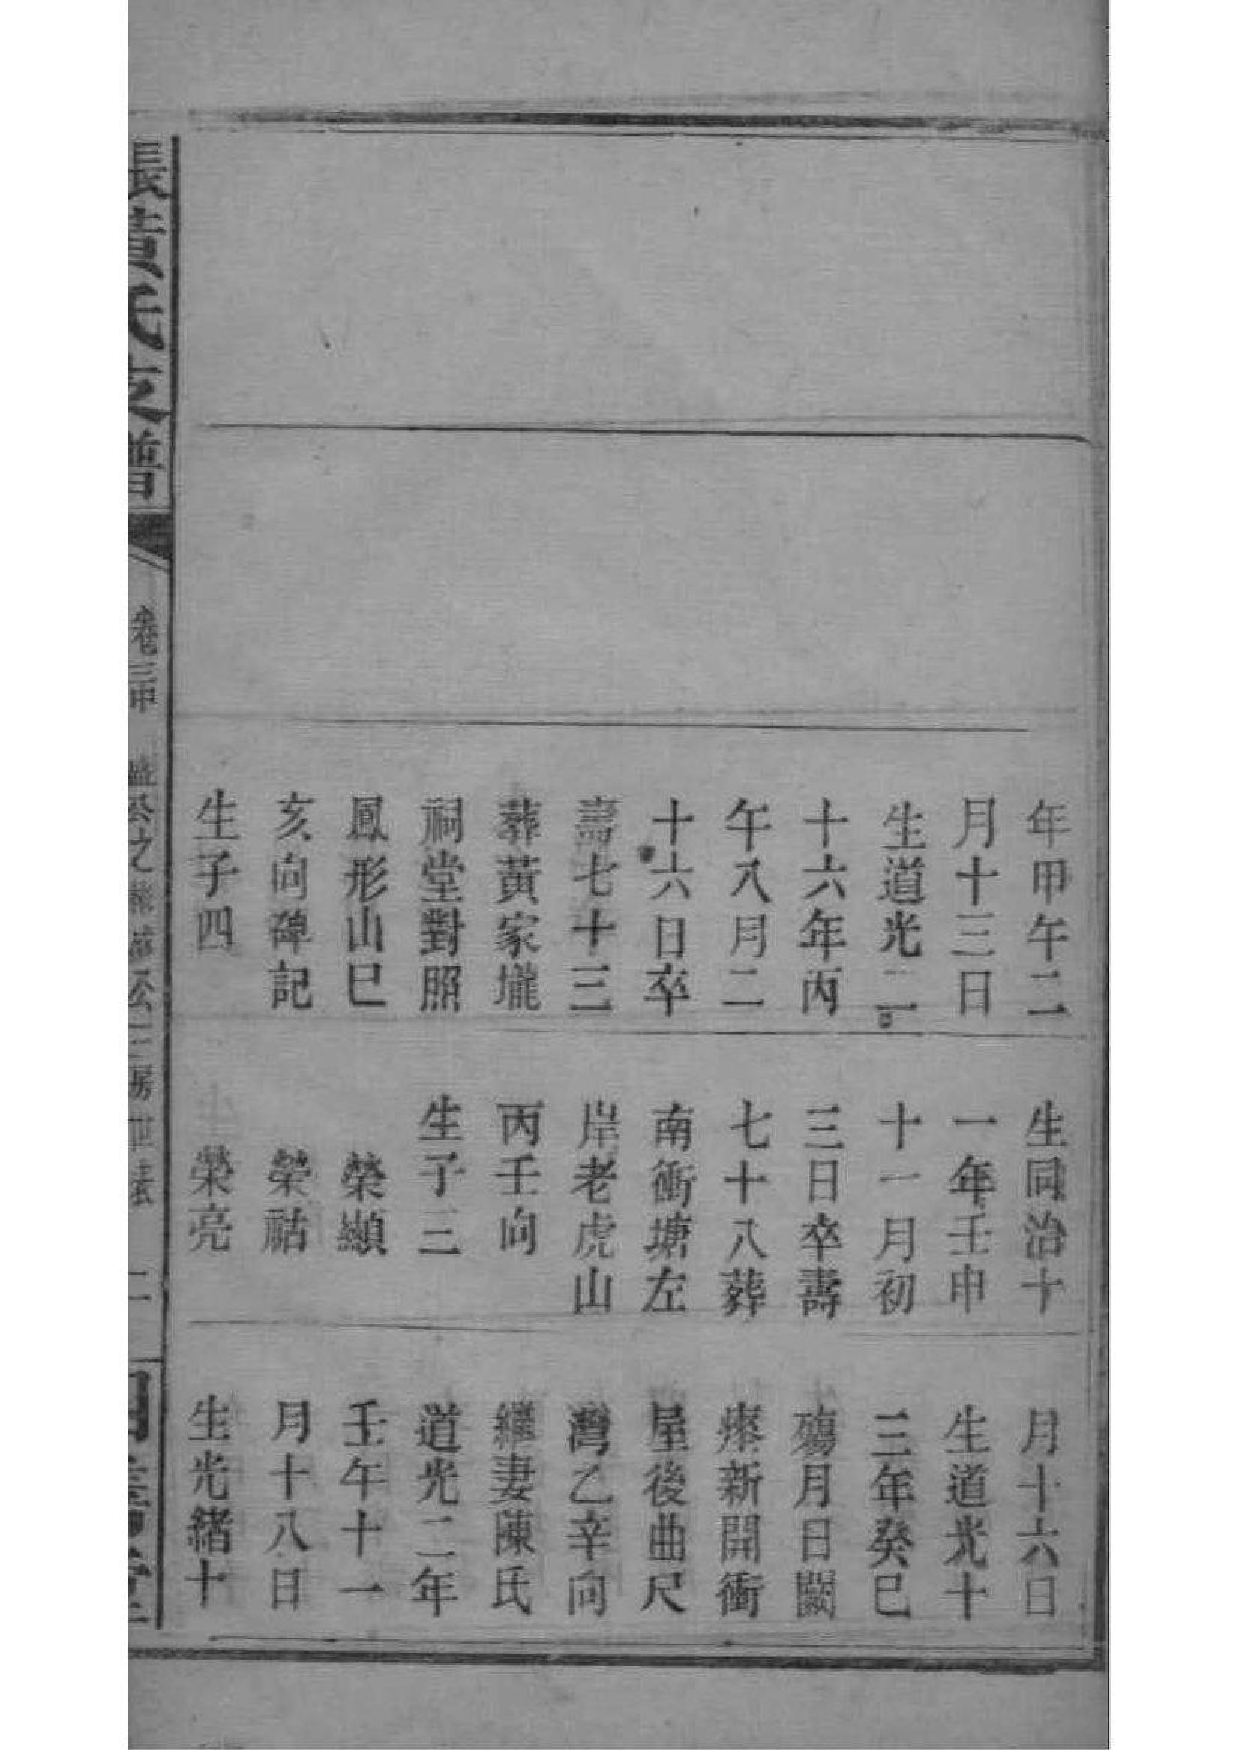 年甲午二
月十三日
生道光二
十六年丙
午八月二
十六日卒
壽七十三
葬黃家壠
祠堂對照
鳳形山巳
亥向碑記
生子四
生同治十
一年壬申
十一月初
三日卒壽
七十八葬
南衝塘左
岸老虎山
丙壬向
生子三
榮顯
榮祜
榮亮
月十六日
生道光十
三年癸巳
殤月日闕
瘞新開衝
屋後曲尺
灣乙辛向
繼妻陳氏
道光二年
壬午十一
月十八日
生光緒十
張黃氏支譜
卷三甲
公之
公三房世系
二